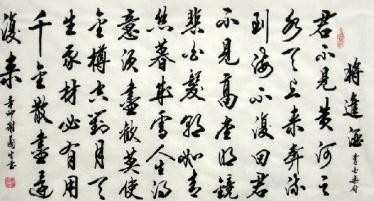 將進酒
君不見黄河之
水天上来奔流
到海不復回君
不見高堂明鏡
悲白髮朝如青
絲暮成雪人生得
意須盡歡莫使
金樽空對月天
生我材必有用
千金散盡還
復来
辛卯